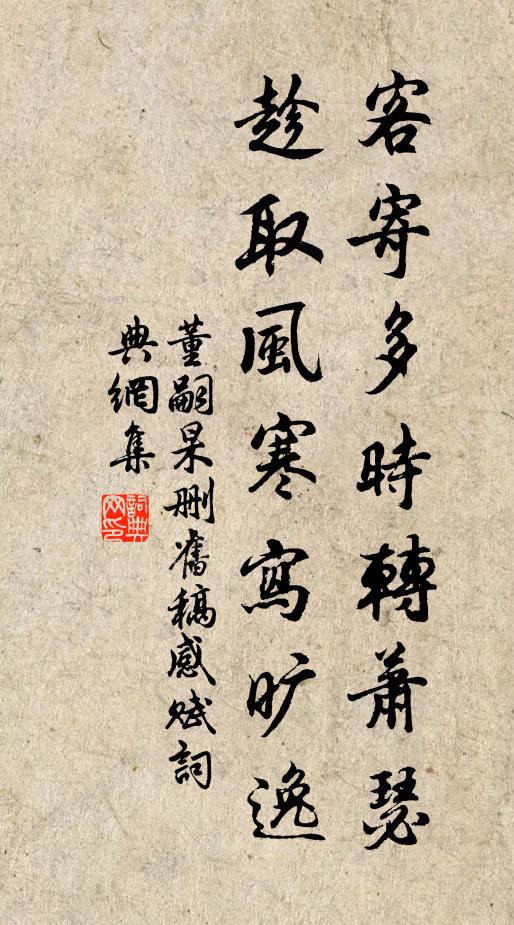 客寄多時轉蕭瑟
趁取風寒寫旷逸
董嗣杲刪舊稿感賦詞
典網集
詞典網印